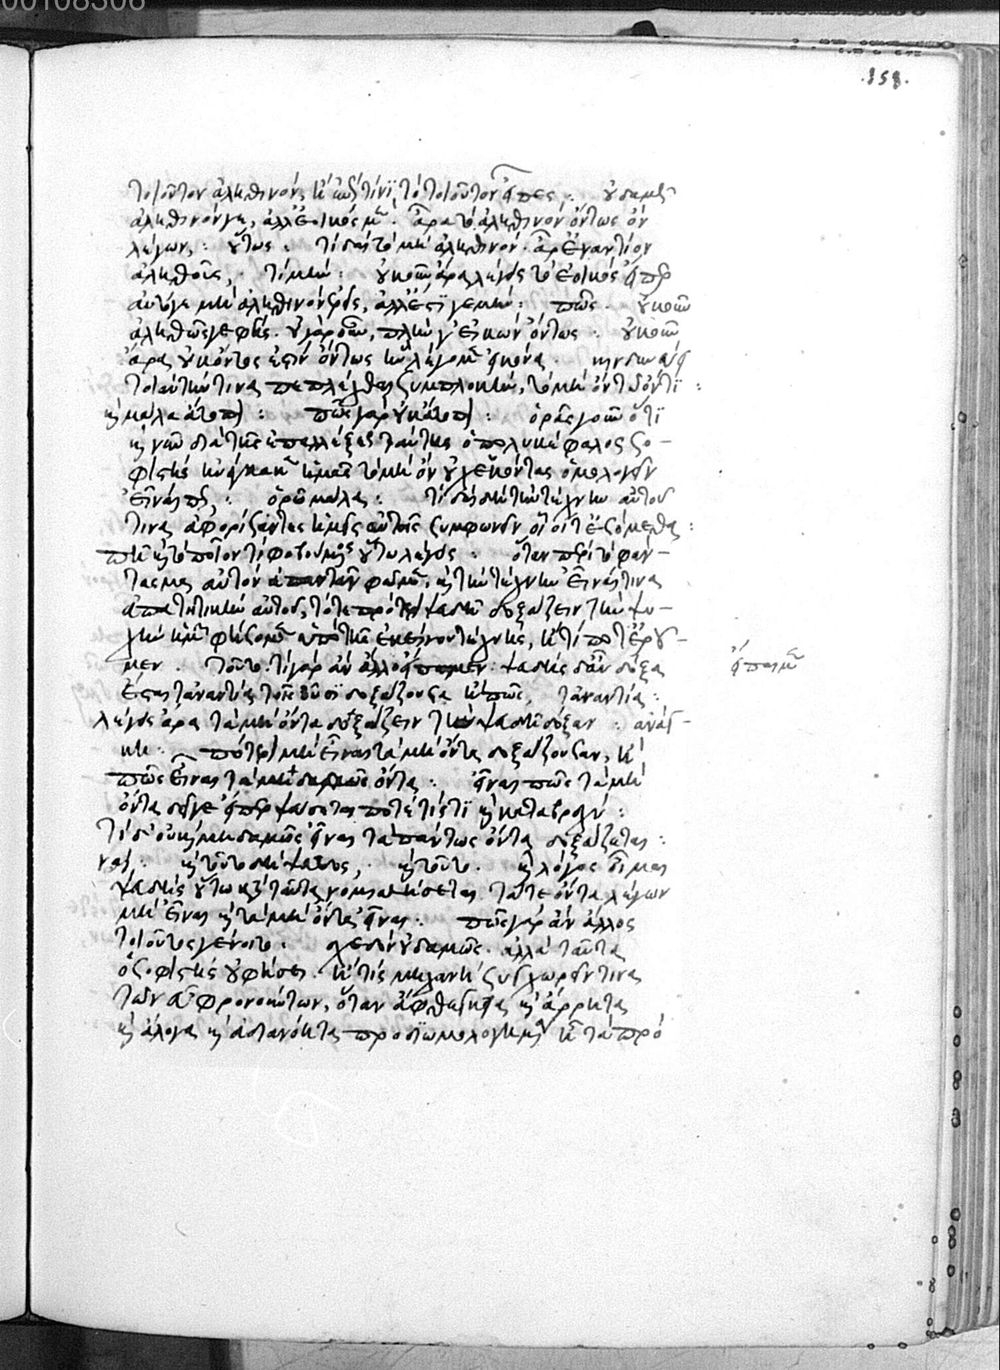 00108306
.158.
τοιοῦτον ἀληθινόν, ἢ ἐπὶ τίνι τὸ τοιοῦτον εἶπες : οὐδαμῶς
ἀληθινόν γε, ἀλλ' ἐοικὸς μὲν . ἆρα τὸ ἀληθινὸν ὄντως ὂν
λέγων : οὕτως : τί δαὶ τὸ μὴ ἀληθινόν . ἆρ' ἐναντίον
ἀληθοῦς . τί μήν : οὐκ ὂν ἄρα λέγεις τὸ ἐοικὸς εἴπερ
αὐτό γε μὴ ἀληθινὸν ἐρεῖς, ἀλλ' ἔστι γε μήν : πῶς . οὔκουν
ἀληθῶς γε φῄς . οὐ γὰρ οὖν, πλήν γ' εἰκὼν ὄντως : οὐκ ὂν
ἄρα οὐκ ὄντως ἐστὶν ὄντως ἣν λέγομεν εἰκόνα . κινδυνεύει
τοιαύτην τινὰ πεπλέχθαι συμπλοκὴν, τὸ μὴ ὂν τῷ ὄντι :
καὶ μάλα ἄτοπον : πῶς γὰρ οὐκ ἄτοπον : ὁρᾷς γοῦν ὅτι
καὶ νῦν διὰ τῆς ἐπαλλάξεως ταύτης ὁ πολυκέφαλος σο-
φιστὴς ἠνάγκακεν ἡμᾶς τὸ μὴ ὂν οὐχ ἑκόντας ὁμολογεῖν
εἶναί πως : ὁρῶ μάλα : τί δαὶ δὴ τὴν τέχνην αὐτοῦ
τίνα ἀφορίσαντες ἡμῖν αὐτοῖς συμφωνεῖν οἷοί τε ἐσόμεθα :
πῇ καὶ τὸ ποῖόν τι φοβούμενος οὕτω λέγεις : ὅταν περὶ τὸ φάν-
τασμα αὐτὸν ἀπαντᾶν φῶμεν, καὶ τὴν τέχνην εἶναί τινα
ἀπατητικὴν αὐτοῦ, τότε πρότερον ψευδῆ δοξάζειν τὴν ψυ-
χὴν ἡμῶν φήσομεν ὑπὸ τῆς ἐκείνου τέχνης, ἢ τί ποτ' ἐροῦ-
μεν . τοῦτο . τί γὰρ ἂν ἄλλο εἴπαιμεν . ψευδὴς δ' αὖ δόξα
εἴπαιμεν
ἔσται τἀναντία τοῖς οὖσι δοξάζουσα ἢ πῶς . τἀναντία :
λέγεις ἄρα τὰ μὴ ὄντα δοξάζειν τὴν ψευδῆ δόξαν : ἀνάγ-
κη . πότερον μὴ εἶναι τὰ μὴ ὄντα δοξάζουσαν, ἢ
πῶς εἶναι τὰ μηδαμῶς ὄντα : εἶναί πως τὰ μὴ
ὄντα δεῖ γε εἴπερ ψεύσεταί ποτέ τίς τι καὶ κατὰ βραχύ :
τί δ' οὐ καὶ μηδαμῶς εἶναι τὰ πάντως ὄντα δοξάζεται :
ναί : καὶ τοῦτο δὴ ψεῦδος . καὶ τοῦτο . καὶ λόγος οἶμαι
ψευδὴς οὕτω κατὰ ταῦτα νομισθήσεται τά τε ὄντα λέγων
μὴ εἶναι καὶ τὰ μὴ ὄντα εἶναι . πῶς γὰρ ἂν ἄλλως
τοιοῦτος γένοιτο . σχεδὸν οὐδαμῶς . ἀλλὰ ταῦτα
ὁ σοφιστὴς οὐ φήσει . ἢ τίς μηχανὴ συγχωρεῖν τινα
τῶν εὖ φρονούντων, ὅταν ἄφθεγκτα καὶ ἄρρητα
καὶ ἄλογα καὶ ἀδιανόητα προσδιωμολογημένα ᾖ τὰ πρὸ